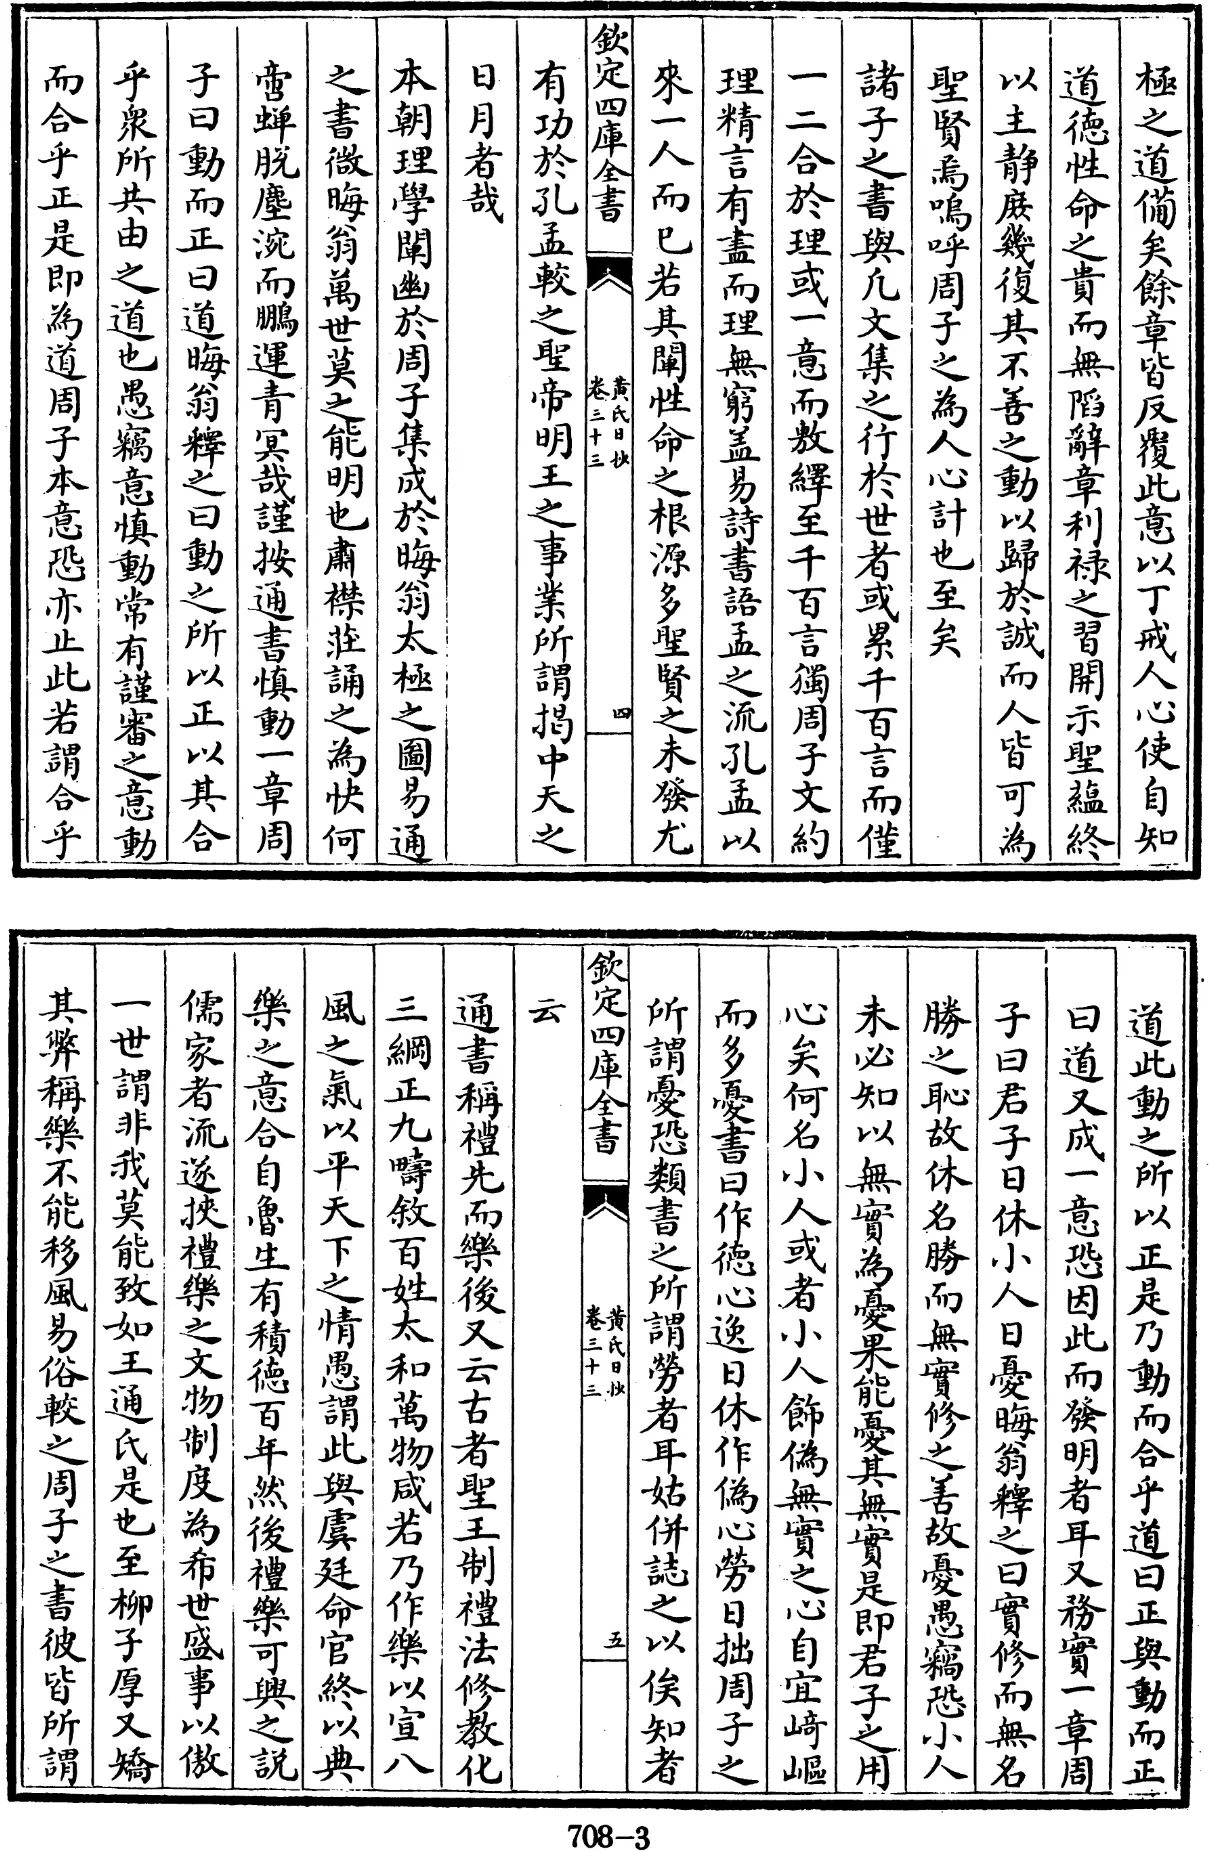 極之道備矣餘章皆反覆此意以丁戒人心使自知
道徳性命之貴而無陷辭章利禄之習開示聖蘊終
以主静庻幾復其不善之動以歸於誠而人皆可為
聖賢焉嗚呼周子之為人心計也至矣
諸子之書與凢文集之行於世者或累千百言而僅
一二合於理或一意而敷繹至千百言獨周子文約
理精言有盡而理無窮盖易詩書語孟之流孔孟以
來一人而已若其闡性命之根源多聖賢之未發尤
欽定四庫全書
黄氏日抄
卷三十三
四
有功於孔孟較之聖帝明王之事業所謂揭中天之
日月者哉
本朝理學闡幽於周子集成於晦翁太極之圖易通
之書微晦翁萬世莫之能明也肅襟莊誦之為快何
啻蟬脱塵涴而鵬運青冥哉謹按通書慎動一章周
子曰動而正曰道晦翁釋之曰動之所以正以其合
乎衆所共由之道也愚竊意慎動常有謹審之意動
而合乎正是即為道周子本意恐亦止此若謂合乎
道此動之所以正是乃動而合乎道曰正與動而正
曰道又成一意恐因此而發明者耳又務實一章周
子曰君子日休小人日憂晦翁釋之曰實修而無名
勝之恥故休名勝而無實修之善故憂愚竊恐小人
未必知以無實為憂果能憂其無實是即君子之用
心矣何名小人或者小人飾偽無實之心自宜崎嶇
而多憂書曰作徳心逸日休作偽心勞日拙周子之
所謂憂恐類書之所謂勞者耳姑併誌之以俟知者
欽定四庫全書
黄氏日抄
卷三十三
五
云
通書稱禮先而樂後又云古者聖王制禮法修教化
三綱正九疇敘百姓太和萬物咸若乃作樂以宣八
風之氣以平天下之情愚謂此與虞廷命官終以典
樂之意合自魯生有積徳百年然後禮樂可興之説
儒家者流遂挾禮樂之文物制度為希世盛事以傲
一世謂非我莫能致如王通氏是也至柳子厚又矯
其弊稱樂不能移風易俗較之周子之書彼皆所謂
708-3